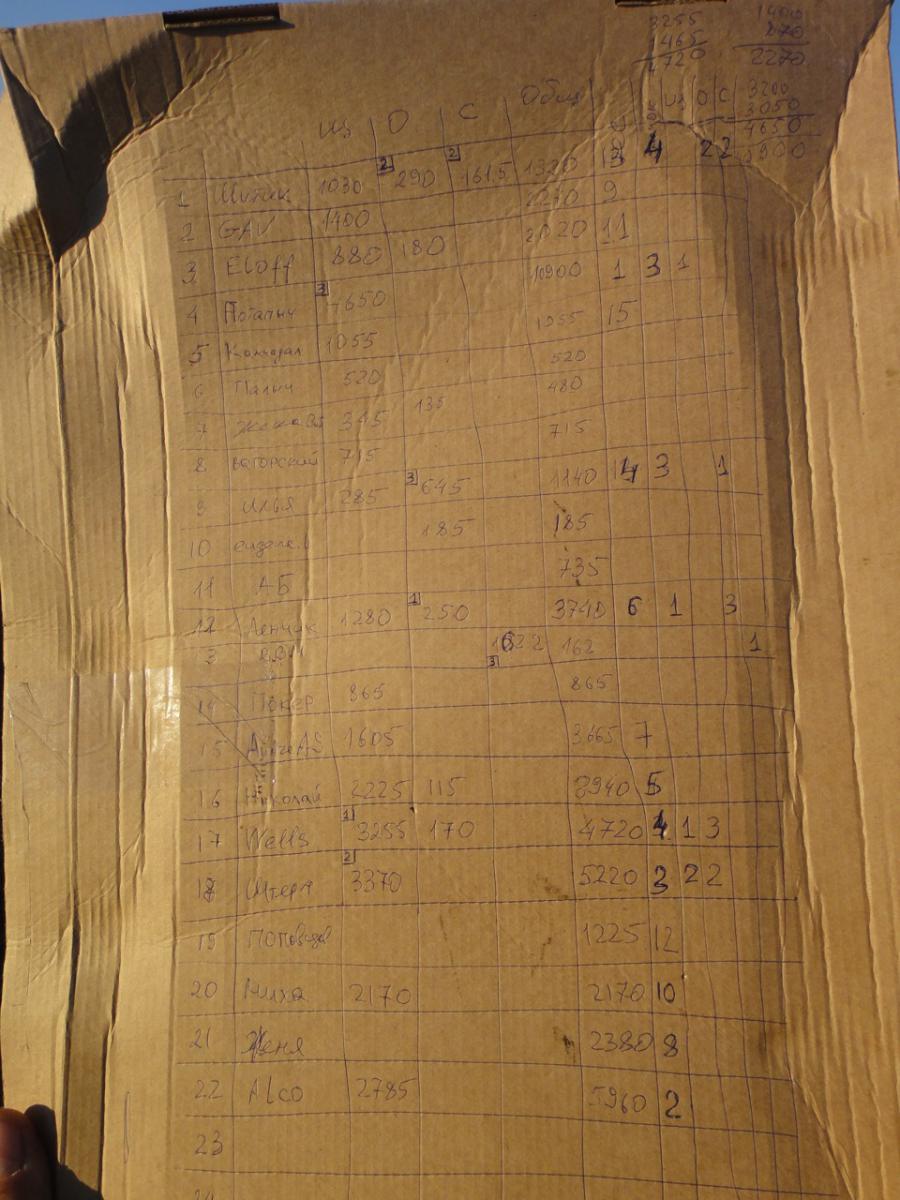 3255
465
4720
1400
870
2270
3200
3050
4650
Щ О С Общ Щ О С
1 1030 2 290 2 1615 1320 13 4 2 2
2 GAV 1400 2270 9
3 Eloff 880 180 2020 11
4 Потапыч 3 7650 10900 1 3 1
5 1055 1055 15
6 Палыч 520 520
7 345 135 480
8 715 715
9 Илья 285 3 645 1140 14 3 1
10 185 185
11 АБ 735
12 Ленчик 1280 1 250 3740 6 1 3
3 3 162 1
14 Покер 865 865
15 1605 3665 7
16 Николай 2225 115 3940 5
17 Wells 1 3255 170 4720 4 1 3
18 2 3370 5220 3 2 2
19 1225 12
20 Миха 2170 2170 10
21 Женя 2380 8
22 Alco 2785 5960 2
23
24